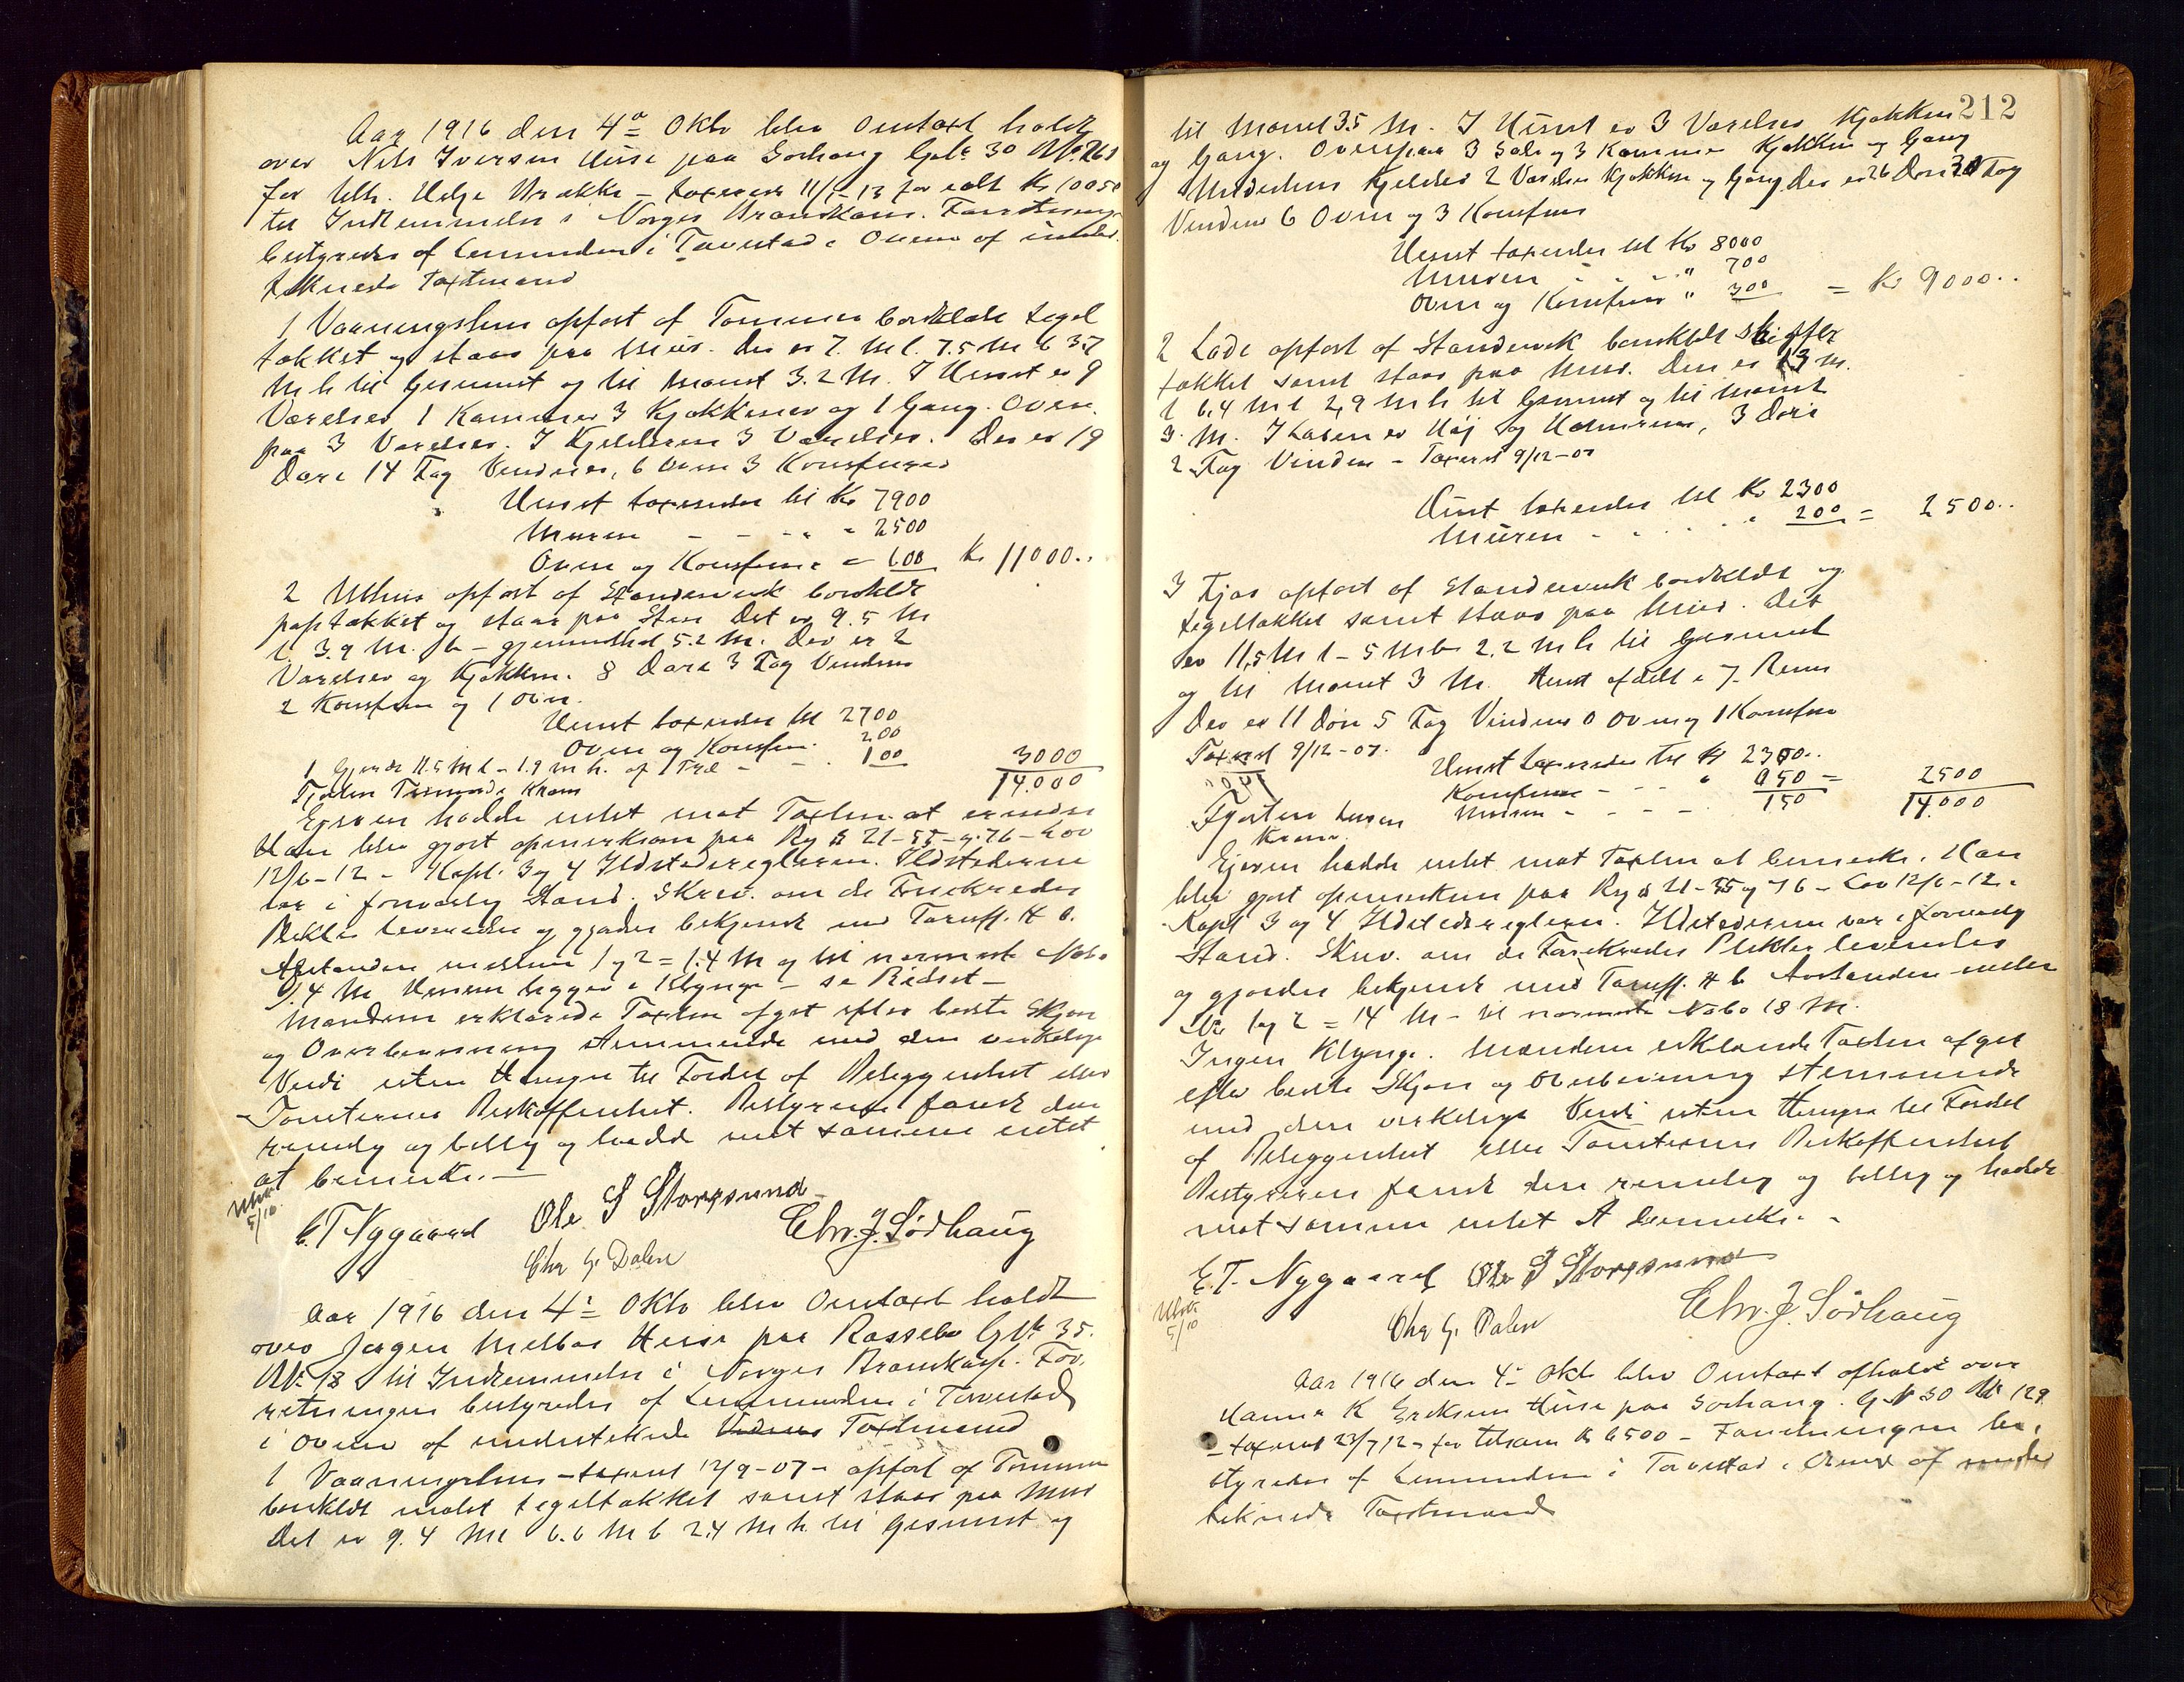 Aar 1916 den 4de Oktb blev Omtaxt holdt
over Nils Iversen Huse paa Sørhaug Gaks 30
for taxeret 11/ - 13 for ialt Kr 10050
til Indlemmelse i Norges Brandkasse. Forretning
bestyredes af Lensmanden i Torvestad i Overv af under
teknede Taxtmænd
1 Vaaningshus opført af Tømmer bordklædt tegel
tækket og staar paa Mur. Der er 7. M l. 7.5 M b 3.7
M h til Gesimset og til Mønet 3.2 M. I Huset er 9
Værelser 1 Kammer 3 Kjøkkener og 1 Gang. Oven
paa 3 Værelser. I Kjelderen 3 Værelser. Der er 19
Døre 14 Fag Vinduer, 6 Ovne 3 Komfurer
Huset taxeredes til Kr 7900
Muren - - - - 2500
Ovne og Komfurer - 600 Kr 11000..
2 Uthus opført af Standerverk bordklædt
paptækket og staar paa Sten Det er 9.5 M
l. 3.9 M. b - gjennemsnitshøi 5.2 M. Der er 2
Værelser og Kjøkken. 8 Døre 3 Fag Vinduer
2 Komfurer og 1 Ovn.
Huset taxeredes til 2700
Ovne og Komfur. 200
1 Gjerde 11.5 M l - 1.9 M h. af Træ - - 100 3000
Fjorten Tusende Kroner 14.000
Eieren hadde intet mot Taxten at erindre
Han blev gjort opmerksom paa Reg § 21-55-og 76 - Lov
12/6-12 - Kapl. 3 og 4 Ildstedsreglerne. Ildstederne
var i forsvarlig Stand. Skrev. om de Forsikredes
Plikter leveredes og gjordes bekjendt med Tariff. H b.
Afstanden mellem 1 og 2 = 1.4 M og til nærmeste Nabo
0.4 M Husene ligger i Klynge - se Ridset -
Mændene erklærede Taxten afgit efter bedste Skjøn
og Overbevisning stemmende med den virkelige
Verdi uten Hensyn til Fordel af Beliggenhet eller
Tomternes Beskaffenhet. Bestyreren fandt den
rimelig og billig og hadde mot samme intet
at bemerke. -
5/10
E. T. Nygaard Ole S Storesund
Chr. J. Sørhaug
Chr G. Dalen
Aar 1916 den 4de Oktb blev Omtaxt holdt
over Jørgen Melbos Huse paa Røssebø G Nr 35.
B Nr 18 til Indlemmelse i Norges Brandkasse. For
retningen bestyredes af Lensmanden i Torvestad
i Overv af underteknede Taxtmænd
1 Vaaningshus - taxeret 12/9-07 - opført af Tømmer
bordklædt malet tegeltækket samt staar paa Mur
Det er 9.4 M l 6.6 M b 2.4 M h til Gesimset og
212
til Mønet 3.5 M. I Huset er 3 Værelser Kjøkken
og Gang. Ovenpaa 3 Sale og 3 Kammer Kjøkken og Gang
Kjelder 2 Værelser Kjøkken og Gang Der er 26 Døre 20 Fag
Vinduer 6 Ovne og 3 Komfurer
Huset taxeredes til Kr 8000
Muren - - - " 700
Ovne og Komfurer " 300 = Kr 9000..
2 Lade opført af Standerverk bordklædt skifer
tækket samt staar paa Mur. Den er 13 M.
l 6.4 M b 2,9 M h til Gesimset og til Mønet
3. M. I Laden er Høj og Kornrum, 3 Døre
2 Fag Vinduer - Taxeret 9/12-07
Huset taxeredes til Kr 2300
Muren - - - - 200 = 2500..
3 Fjøs opført af Standerverk bordklædt og
tegeltækket samt staar paa Mur. Det
er 11,5 M l - 5 M b 2.2 M h til Gesimset
og til Mønet 3 M. Huset afdelt i 7 Rum
Der er 11 Døre 5 Fag Vinduer 0 Ovn og 1 Komfur
Taxeret 9/12-07. Huset taxeredes til Kr 2300..
Komfuren - - - " 050 = 2500
Fjorten tusen Muren - - - 150 14.000
Kroner.
Eieren hadde intet mot Taxten at bemerke. Han
blev gjort opmerksom paa Reg § 21-55 og 76 - Lov 12/6-12.
Kapl 3 og 4 Ildstedsreglerne. Ildstederne var i forsvarlig
Stand. Skrev. om de Forsikredes Plikter leveredes
og gjordes bekjendt med Tariff. H b Avstanden mellem
Nr 1 og 2 = 14 M - til nærmeste Nabo 18 M.
Ingen Klynge. Mændene erklærede Taxten afgit
efter bedste Skjøn og Overbevisning stemmende
med den virkelige Verdi uten Hensyn til Fordel
af Beliggenhet eller Tomternes Beskaffenhet
Bestyreren fandt den rimelig og billig og hadde
mot samme intet at bemerke. -
E. T. Nygaard Ole S Storesund
5/10
Chr G. Dalen Chr. J. Sørhaug
Aar 1916 den 4de Oktb blev Omtaxt afholdt over
Hanna K Eriksen Huse paa Sørhaug. G Nr 30 B Nr 129
- taxeret 23/7 12 - for tilsam Kr 6500 - Forretningen be
styredes af Lensmanden i Torvestad i Overv af under
teknede Taxtmænd